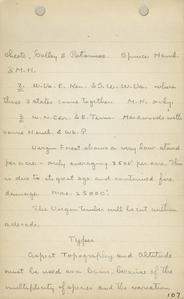 Cheat, Valley & Potomac. Spruce Hemd.
& M.H.
2. W. Va. E. Ken. & S. W. Va. where
these 3 states come together. M.H. only.
3. W. N. Car. & E. Tenn. Hardwoods with
some Hemd. & W. P.
Virgin Forest shows a very low stand
per acre - only averaging 3500' per acre. This
is due to its great age and continued fire
damage. Max. 25000'.
The Virgin timber will be cut within
a decade.
Types
Aspect Topography and Altitude
must be used as a basis, because of the
multiplicity of species and the variation
107